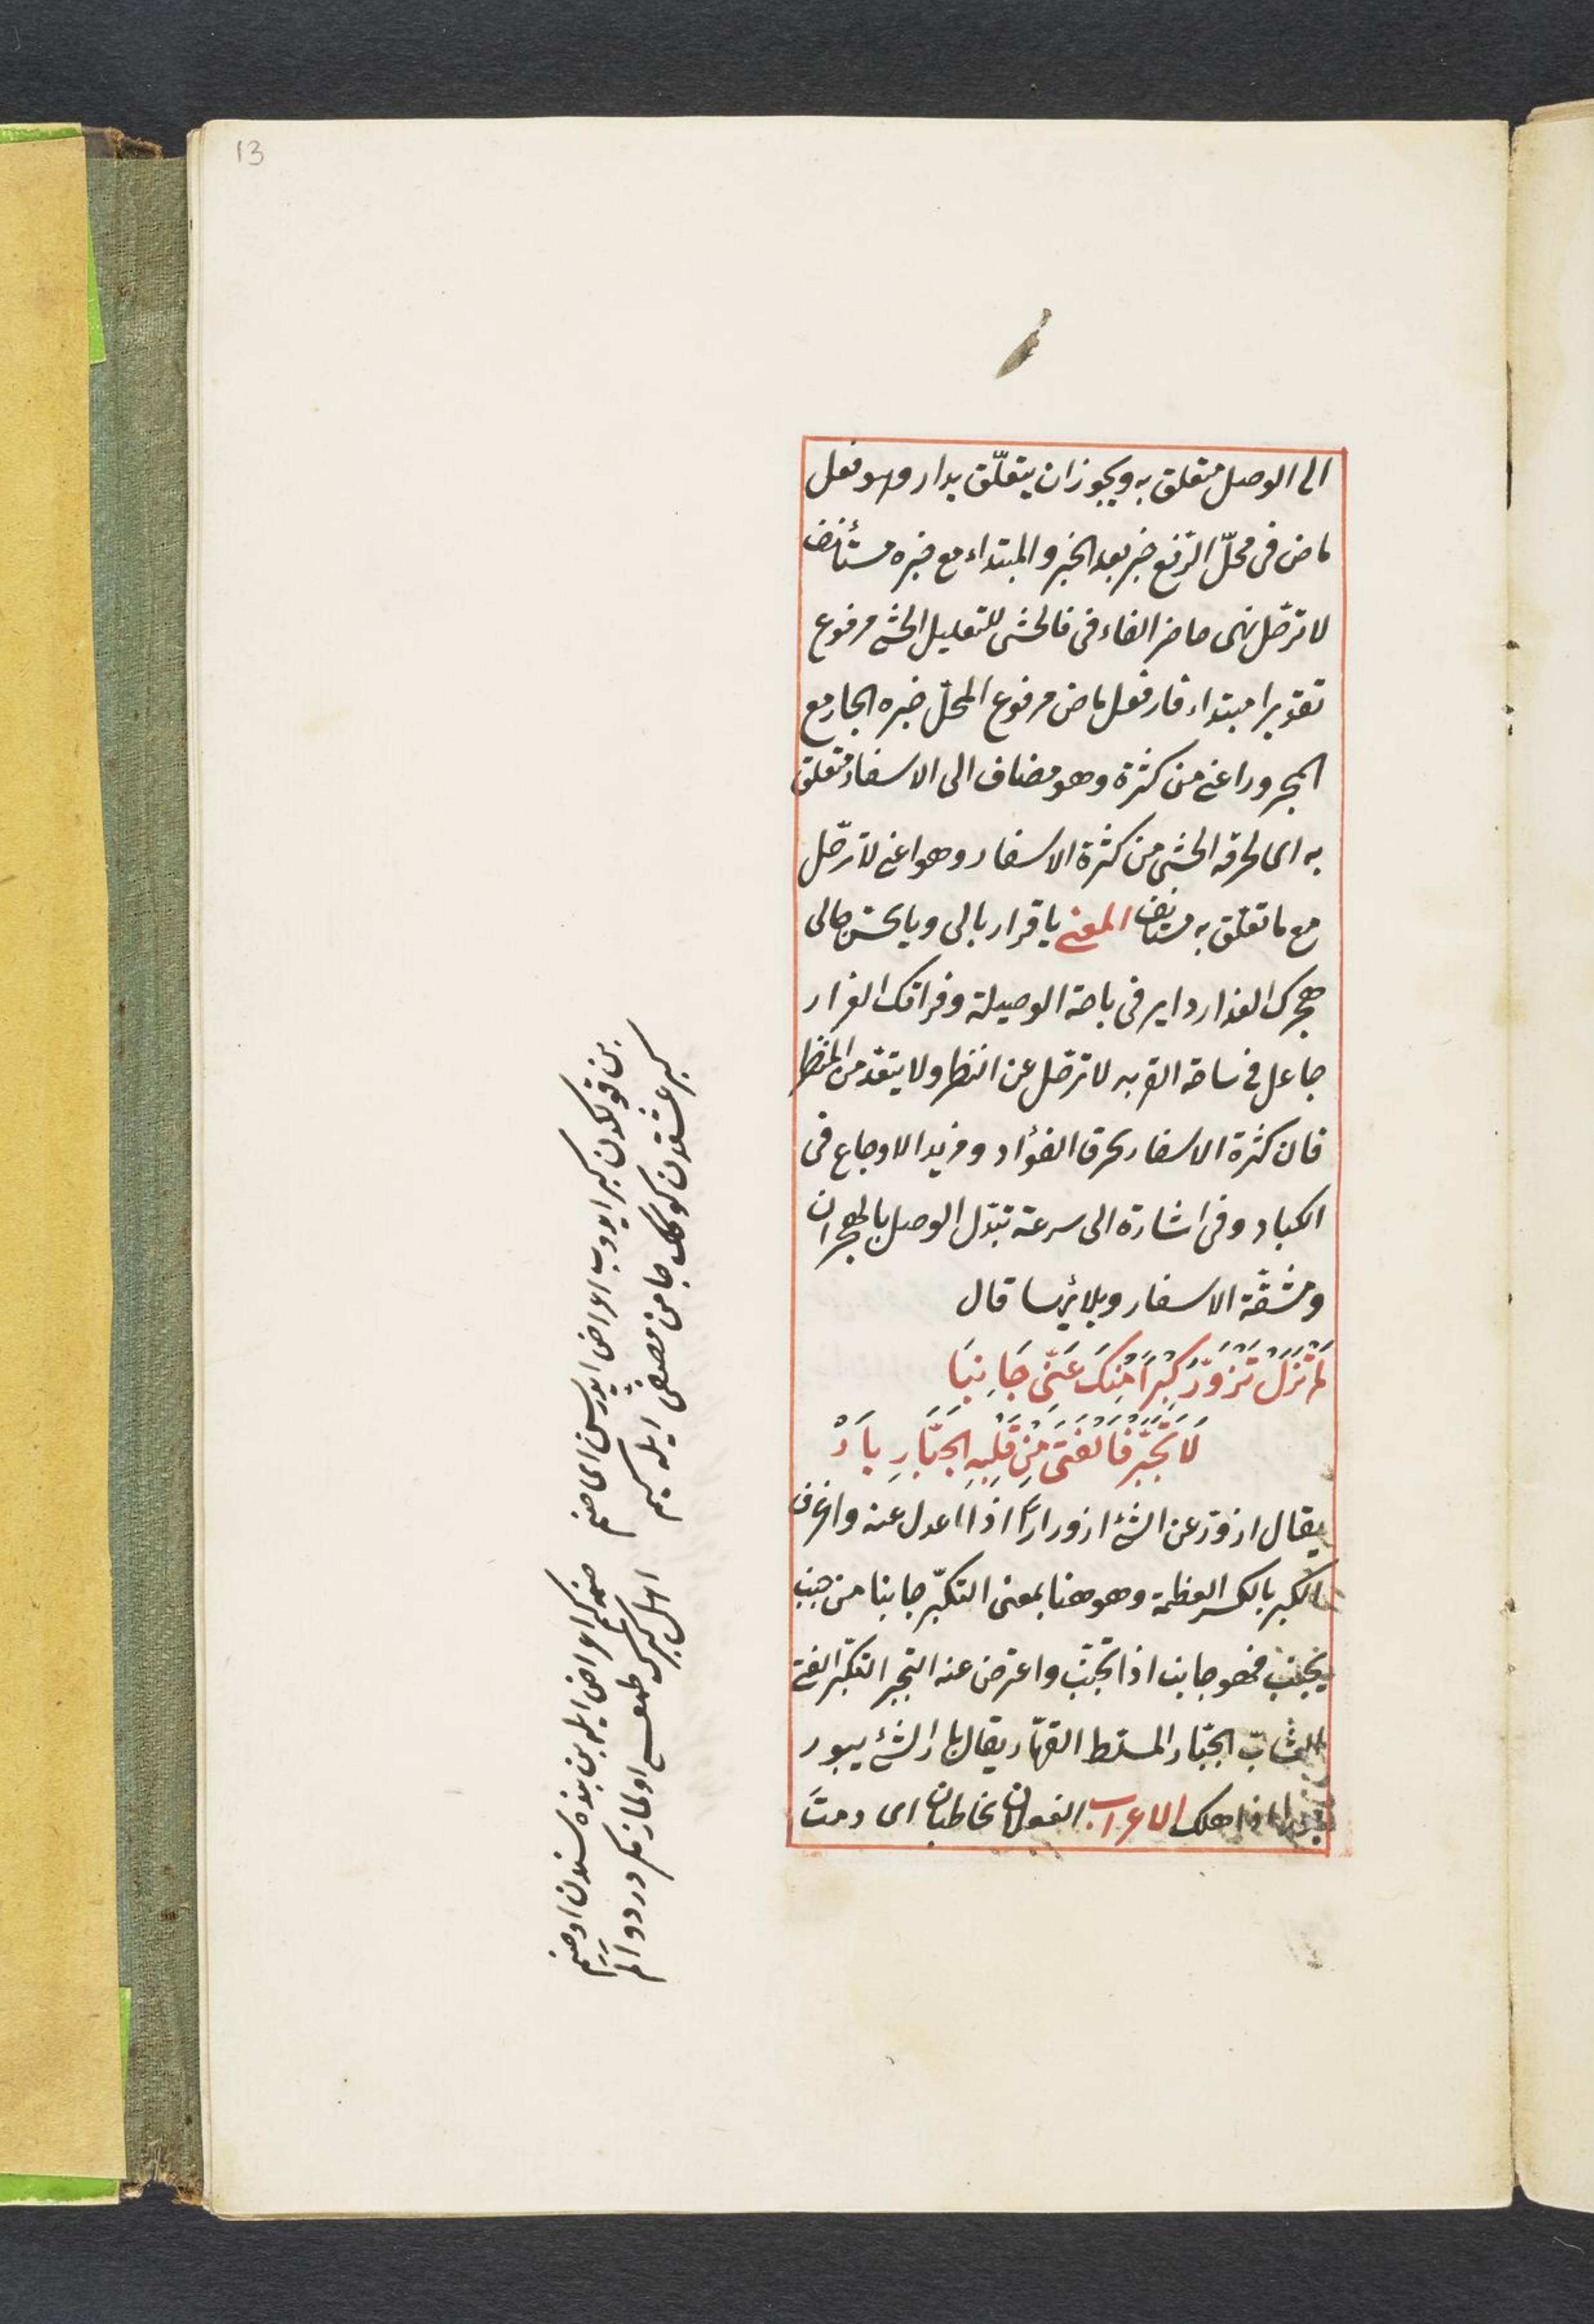 13
الى الوصل متعلق به ويجوز ان يتعلّق بدار وهو فعل
ماض فى محلّ الرّفع خبر بعد الخبر والمبتداء مع خبره مستأنف
لا ترحّل نهى حاضر الفاء فى فالحشى للتعليل الحشى مرفوع
تقديرا مبتداء فار فعل ماض مرفوع المحلّ خبره الجار مع
المجرور اعنى من كثرة وهو مضاف الى الاسفار متعلق
به اى لحرقه الحشى من كثرة الاسفار وهو اعنى لا ترحّل
مع ما تعلّق به مستانف المعنى يا قرار بالى ويا محسّن حالى
هجرك الغدار داير فى باحة الوصيلة وفراقك الغرار
جاعل فى ساحة القربه لا ترحّل عن النظر ولا يتعدّ من المنظر
فان كثرة الاسفار يحرق الفؤاد ومزيد الاوجاع فى
الكباد وفى اشارة الى سرعة تبدّل الوصل بالهجران
ومشقّة الاسفار وبلا ئرسا قال
لَمْ تَزَلْ تَزْوَرُّ كِبْرًا مِنْكَ عَنِّى جَانِبَا
لَا تَجَبَّرْ فَالْفَتَى مِنْ قَلْبِهِ الجَبَّارِ بَارْ
يقال ازورّ عن الشئ ازورارا اذا عدل عنه وانحرف
الكبر بالكسر العظمة وهو هنا بمعنى التكبّر جانبا من جنب
يجنب فهو جانب اذا تجنّب واعترض عنه التجبر التكبّر الفتى
الشابّ الجبّار المسلط القهّار يقال بار الشئ يبور
اذا هلك الاعراب الفعلان مخاطبان اى دمتَ
بن قولكدن كبر ايدوب اعراض ايدرسن اى صنم
كبر عشقدن كوكلك جامن مصفى ايله سيم